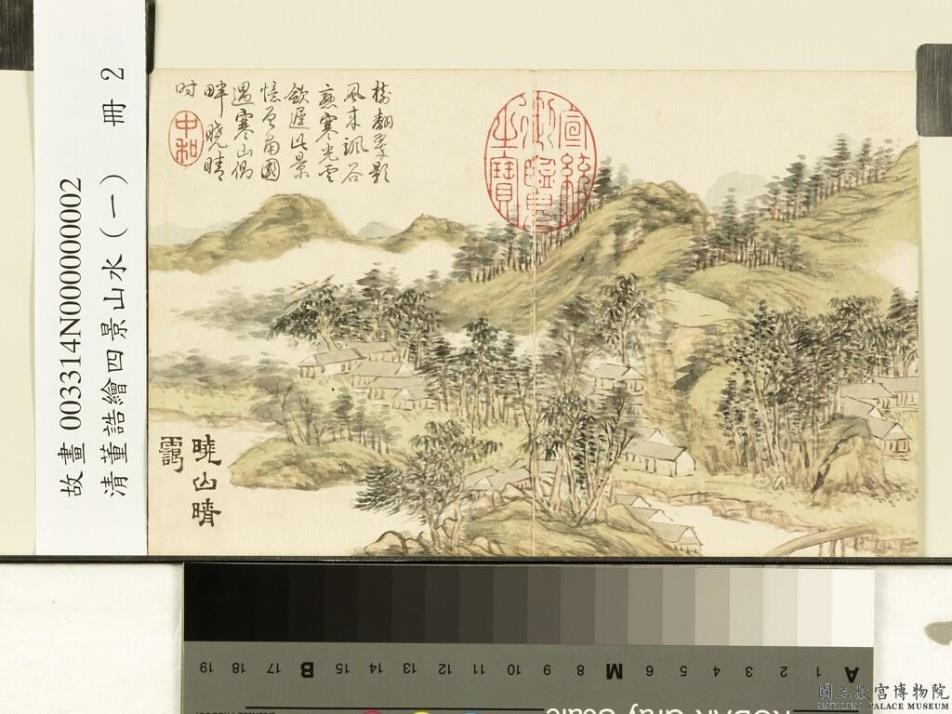 故畫 003314N000000002
清董誥繪四景山水（一） 冊 2
樹翻翠影
風來颯谷
寒光雲
斂遲此景
憶曾南國
遇寒山側
畔曉晴
时
中和
宣統
御覽
之寶
曉山晴
靄
19 18 17 B 15 14 13 12 11 10 9 8 M 6 5 4 3 2 1 A
KODAK Gray Scale
國立故宮博物院
NATIONAL PALACE MUSEUM